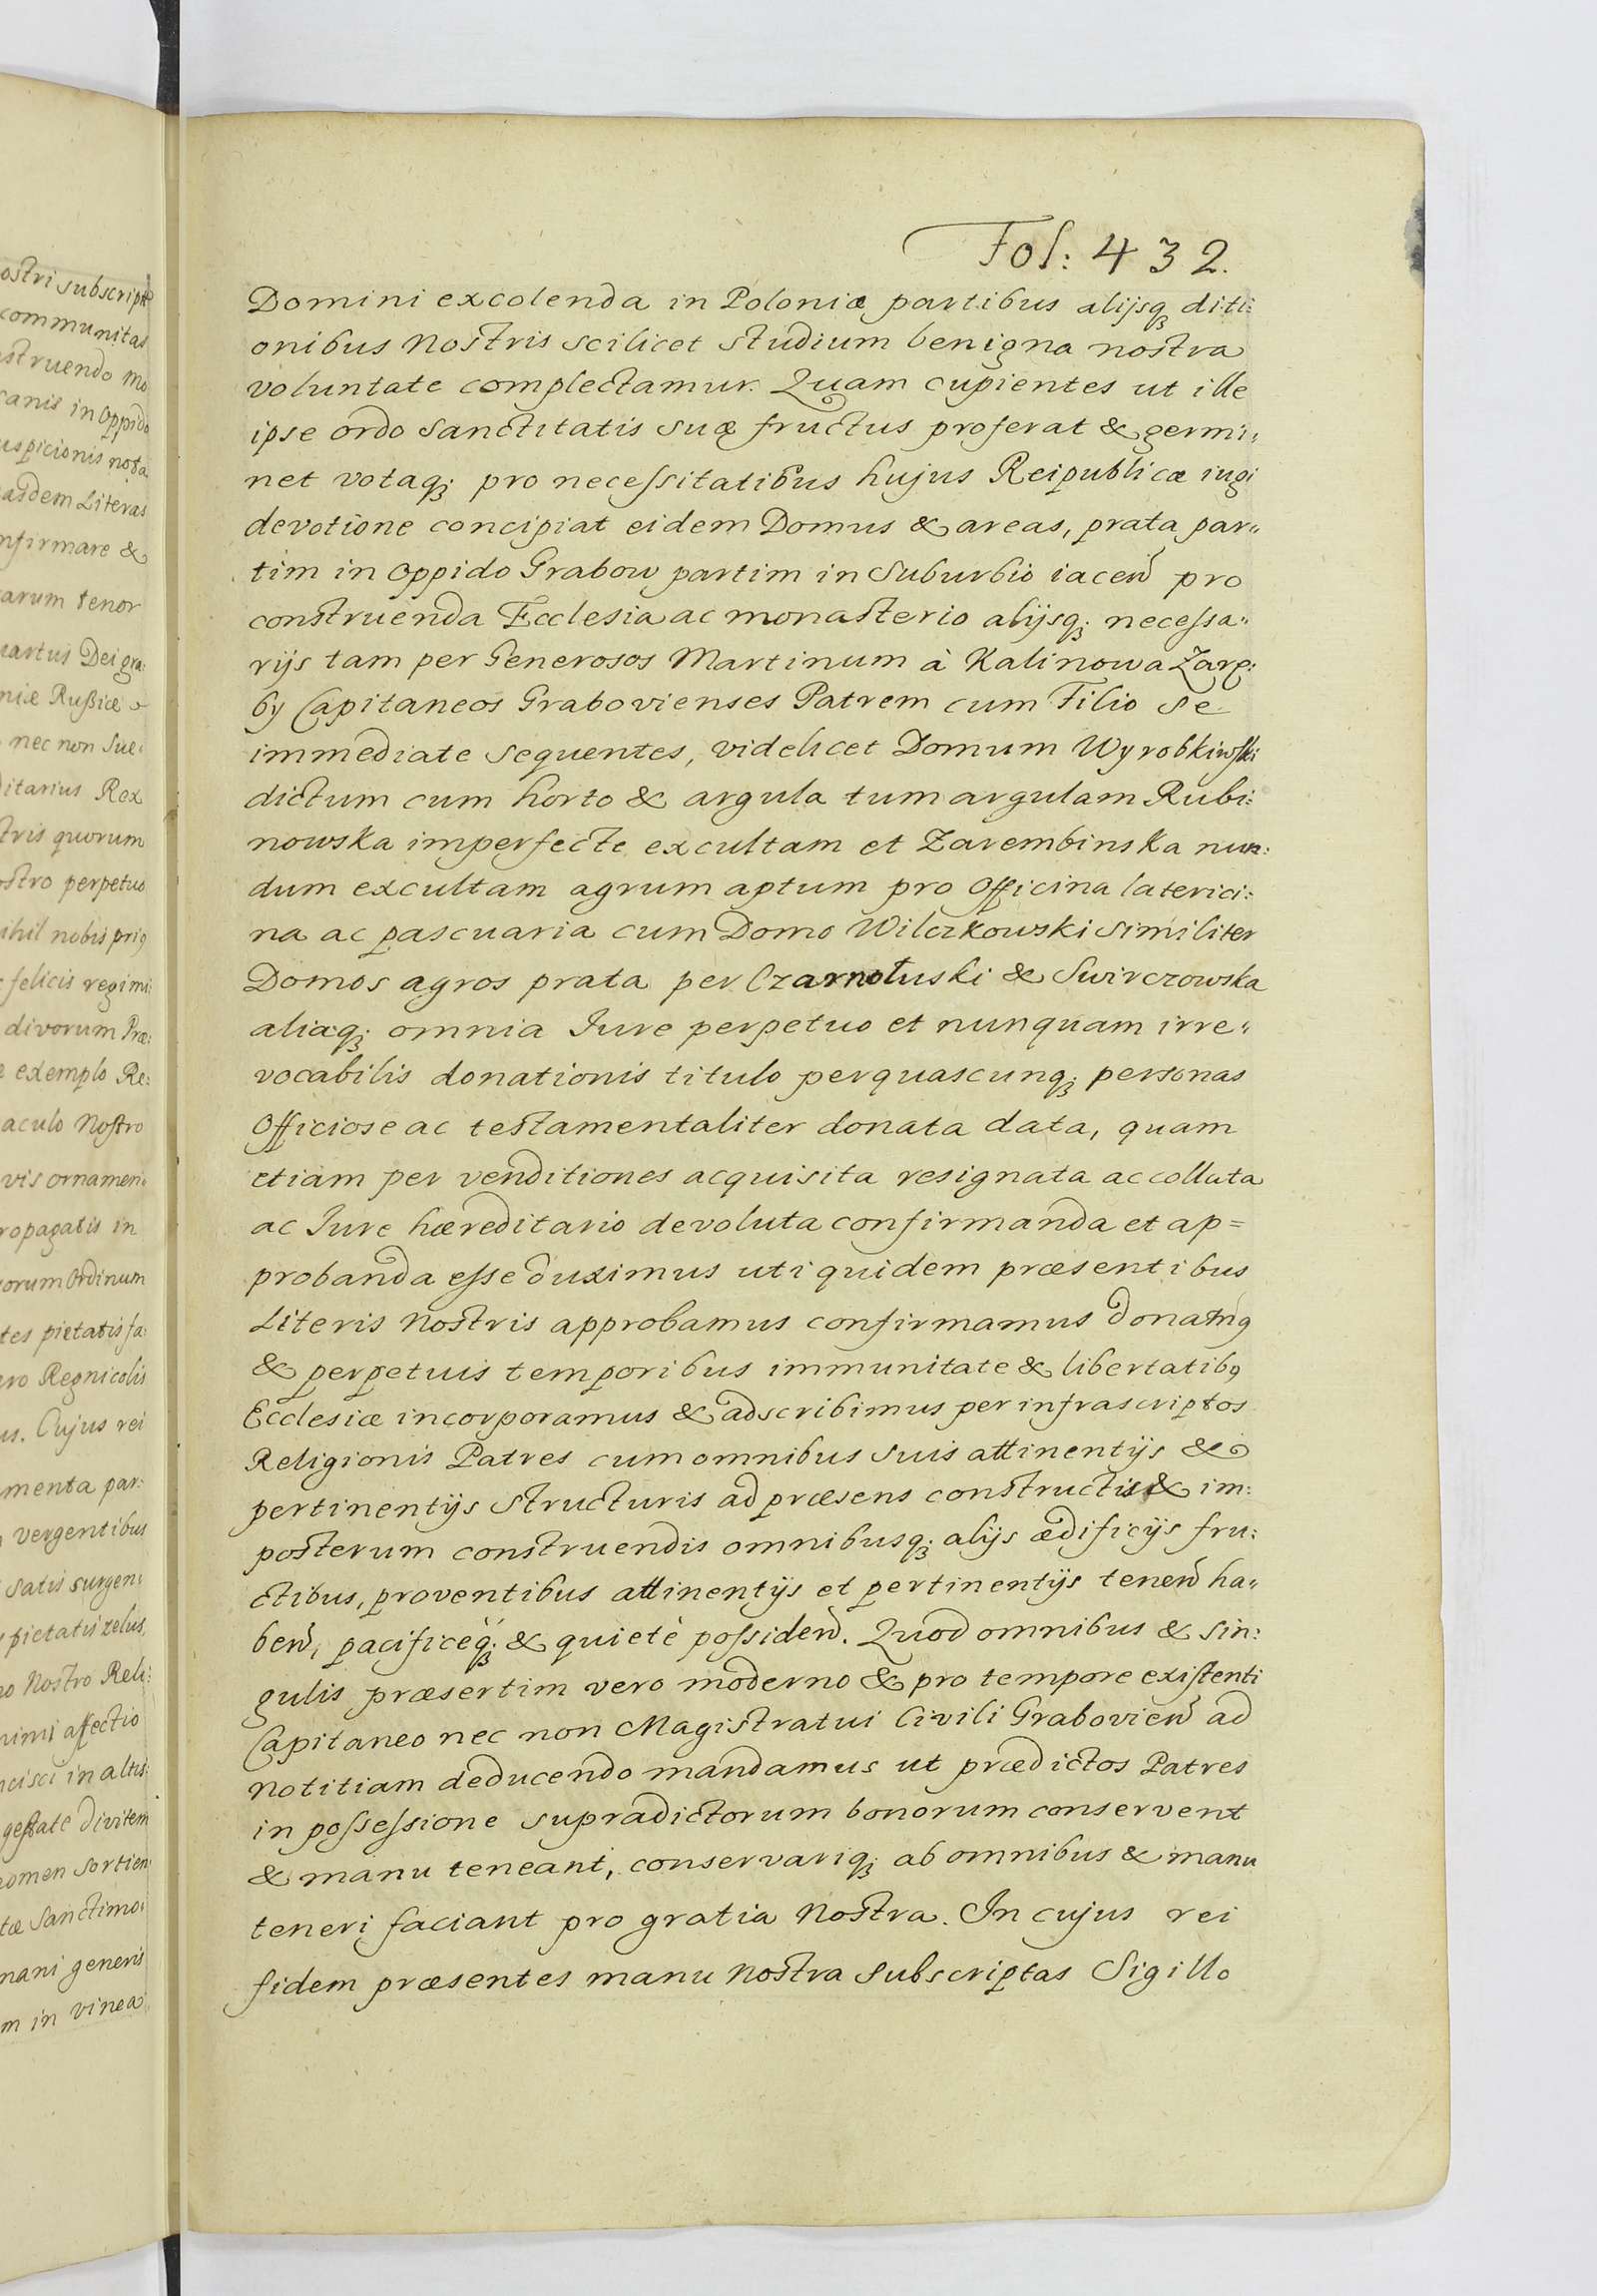 ostri subscript
communitas
struendo mo
canis in Oppido
uspicionis nota
easdem Literas
nfirmare &
arum tenor
uartus Dei gra:
niæ Rußiæ
nec non Sue:
ditarius Rex
tris quorum
ostro perpetuo
ihil nobis priq
felicis regimi:
divorum Præ:
e exemplo Re:
aculo Nostro
vis ornamen:
ropagatis in
orum Ordinum
tes pietatis fa:
uro Regnicolis
us. Cujus rei
menta par:
vergentibus
satis surgen:
pietatis zelus
no Nostro Reli:
nimi affectio
ncisci in altis:
gestate divitem
nomen sortien:
tæ Sanctimo:
mani generis
m in vinea
Fol: 432.
Domini excolenda in Poloniæ partibus alijsq; diti:
onibus Nostris scilicet studium benigna nostra
voluntate complectamur. Quam cupientes ut ille
ipse ordo Sanctitatis suæ fructus proferat & germi:
net votaq; pro necessitatibus hujus Reipublicæ iugi
devotione concipiat eidem Domus & areas, prata par„
tim in Oppido Grabow partim in Suburbio iaceñ pro
construenda Ecclesia ac monasterio alijsq; necessa„
rijs tam per Generosos Martinum à Kalinowa Zarę:
by Capitaneos Grabovienses Patrem cum Filio se
immediate sequentes, videlicet Domum Wyrobkiwski
dictum cum horto & argula tum argulam Rubi:
nowska imperfecte excultam et Zarembinska nun:
dum excultam agrum aptum pro Officina laterici:
na ac pascuaria cum Domo Wilczkowski similiter
Domos agros prata per Czarnołuski & Swirczowska
aliaq; omnia Jure perpetuo et nunquam irre„
vocabilis donationis titulo per quascunq; personas
Officiose ac testamentaliter donata data, quam
etiam per venditiones acquisita resignata ac collata
ac Jure hæreditario devoluta confirmanda et ap=
probanda esse duximus uti quidem præsentibus
Literis Nostris approbamus confirmamus donamq
& perpetuis temporibus immunitate & libertatibq
Ecclesiæ incorporamus & adscribimus per infrascriptos
Religionis Patres cum omnibus suis attinentijs &
pertinentijs structuris ad præsens constructis & im:
posterum construendis omnibusq; alijs ædificijs fru:
ctibus, proventibus attinentijs et pertinentijs teneñ ha„
beñ, pacificèq; & quietè possideñ. Quod omnibus & sin:
gulis præsertim vero moderno & pro tempore existenti
Capitaneo nec non Magistratui Civili Grabovieñ ad
notitiam deducendo mandamus ut prædictos Patres
in possessione supradictorum bonorum conservent
& manu teneant, conservariq; ab omnibus & manu
teneri faciant pro gratia Nostra. In cujus rei
fidem præsentes manu Nostra subscriptas Sigillo